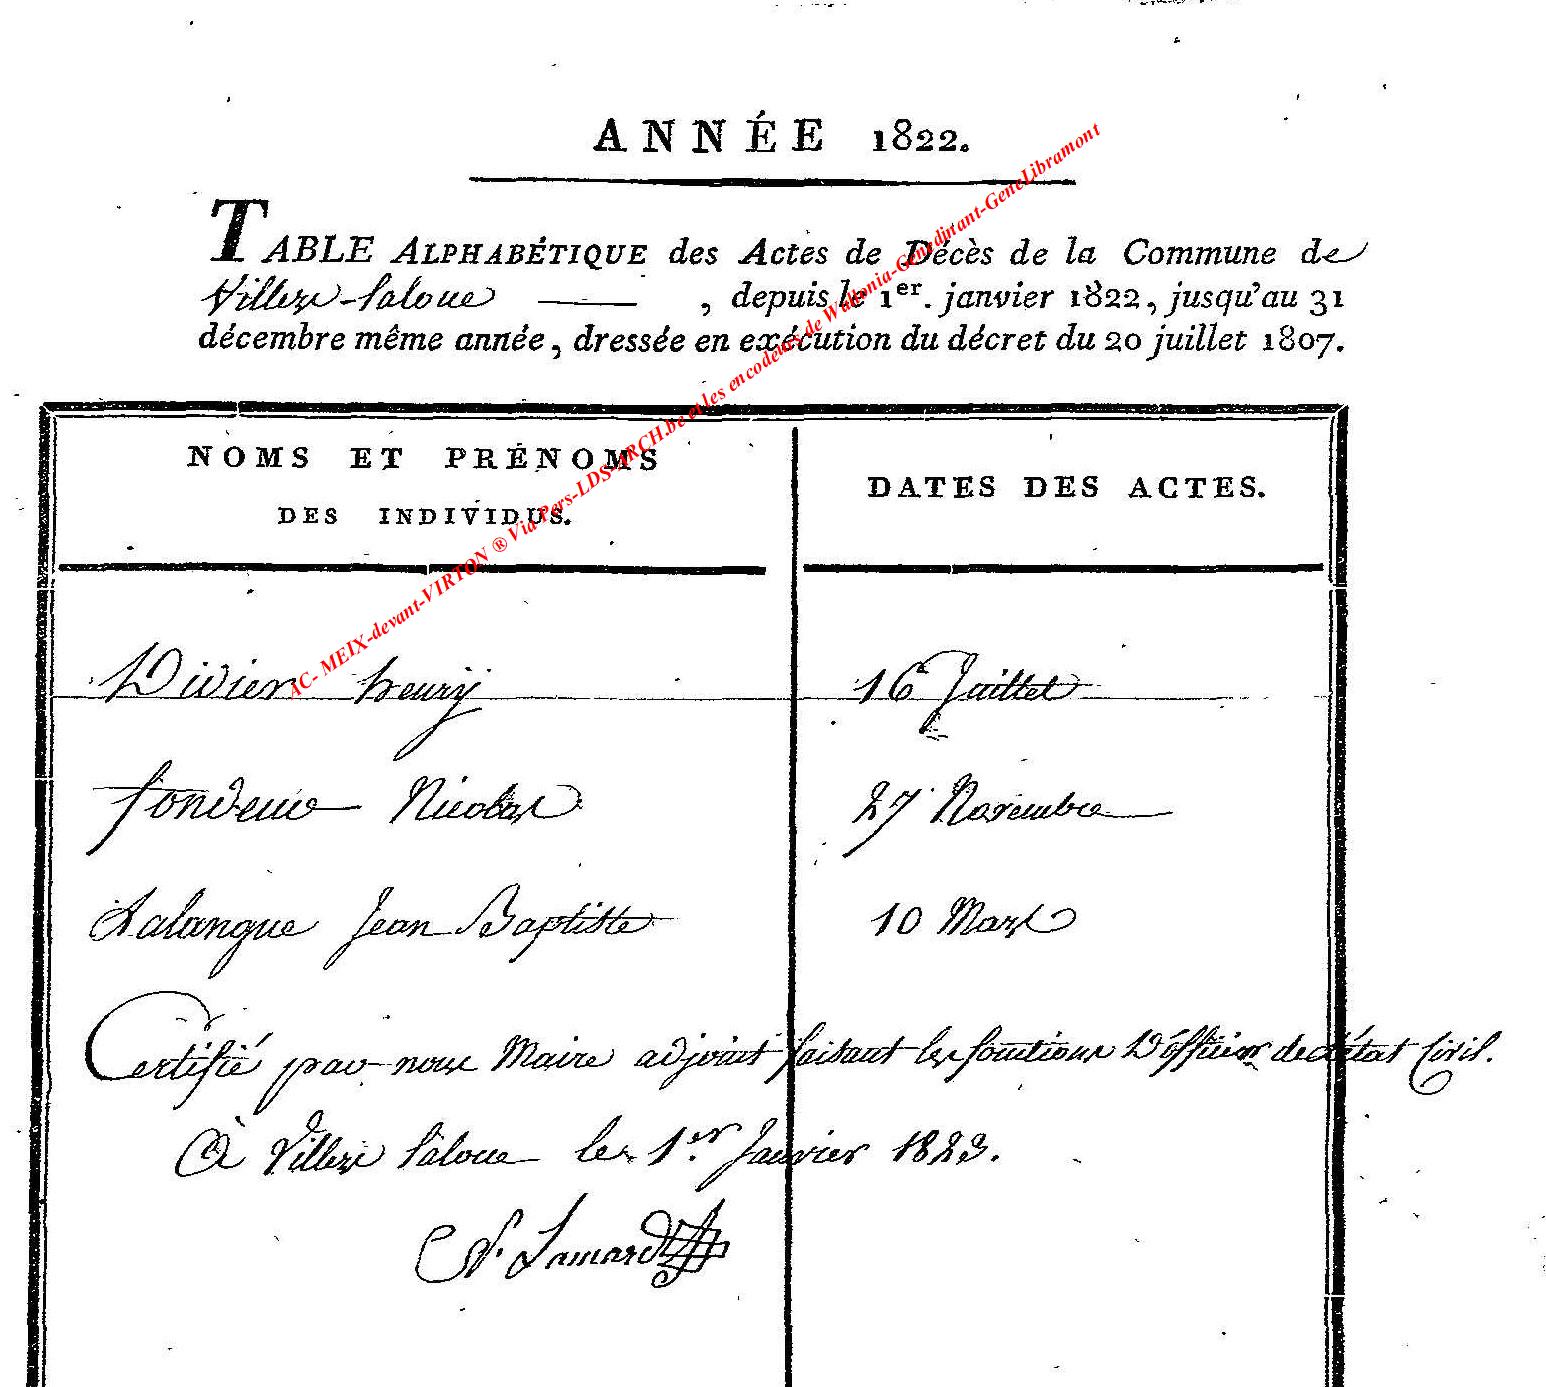 ANNÉE 1822.
TABLE ALPHABÉTIQUE des Actes de Décès de la Commune de
Villers-laloue , depuis le 1er. janvier 1822, jusqu'au 31
décembre même année, dressée en exécution du décret du 20 juillet 1807.
NOMS ET PRÉNOMS
DES INDIVIDUS.
DATES DES ACTES.
Didier henrÿ 16 Juillet
fondeur Nicolas 27 Novembre
Lalangue Jean Baptiste 10 Mars
Certifié par nous Maire adjoint faisant les fonctions D'officier de l'état Civil.
À Villers laloue le 1.er Janvier 1823.
N. Lamard
AC- MEIX-devant-VIRTON ® Via Pers-LDS-ARCH.be et les encodeurs de Wallonia-Genedinant-GeneLibramont